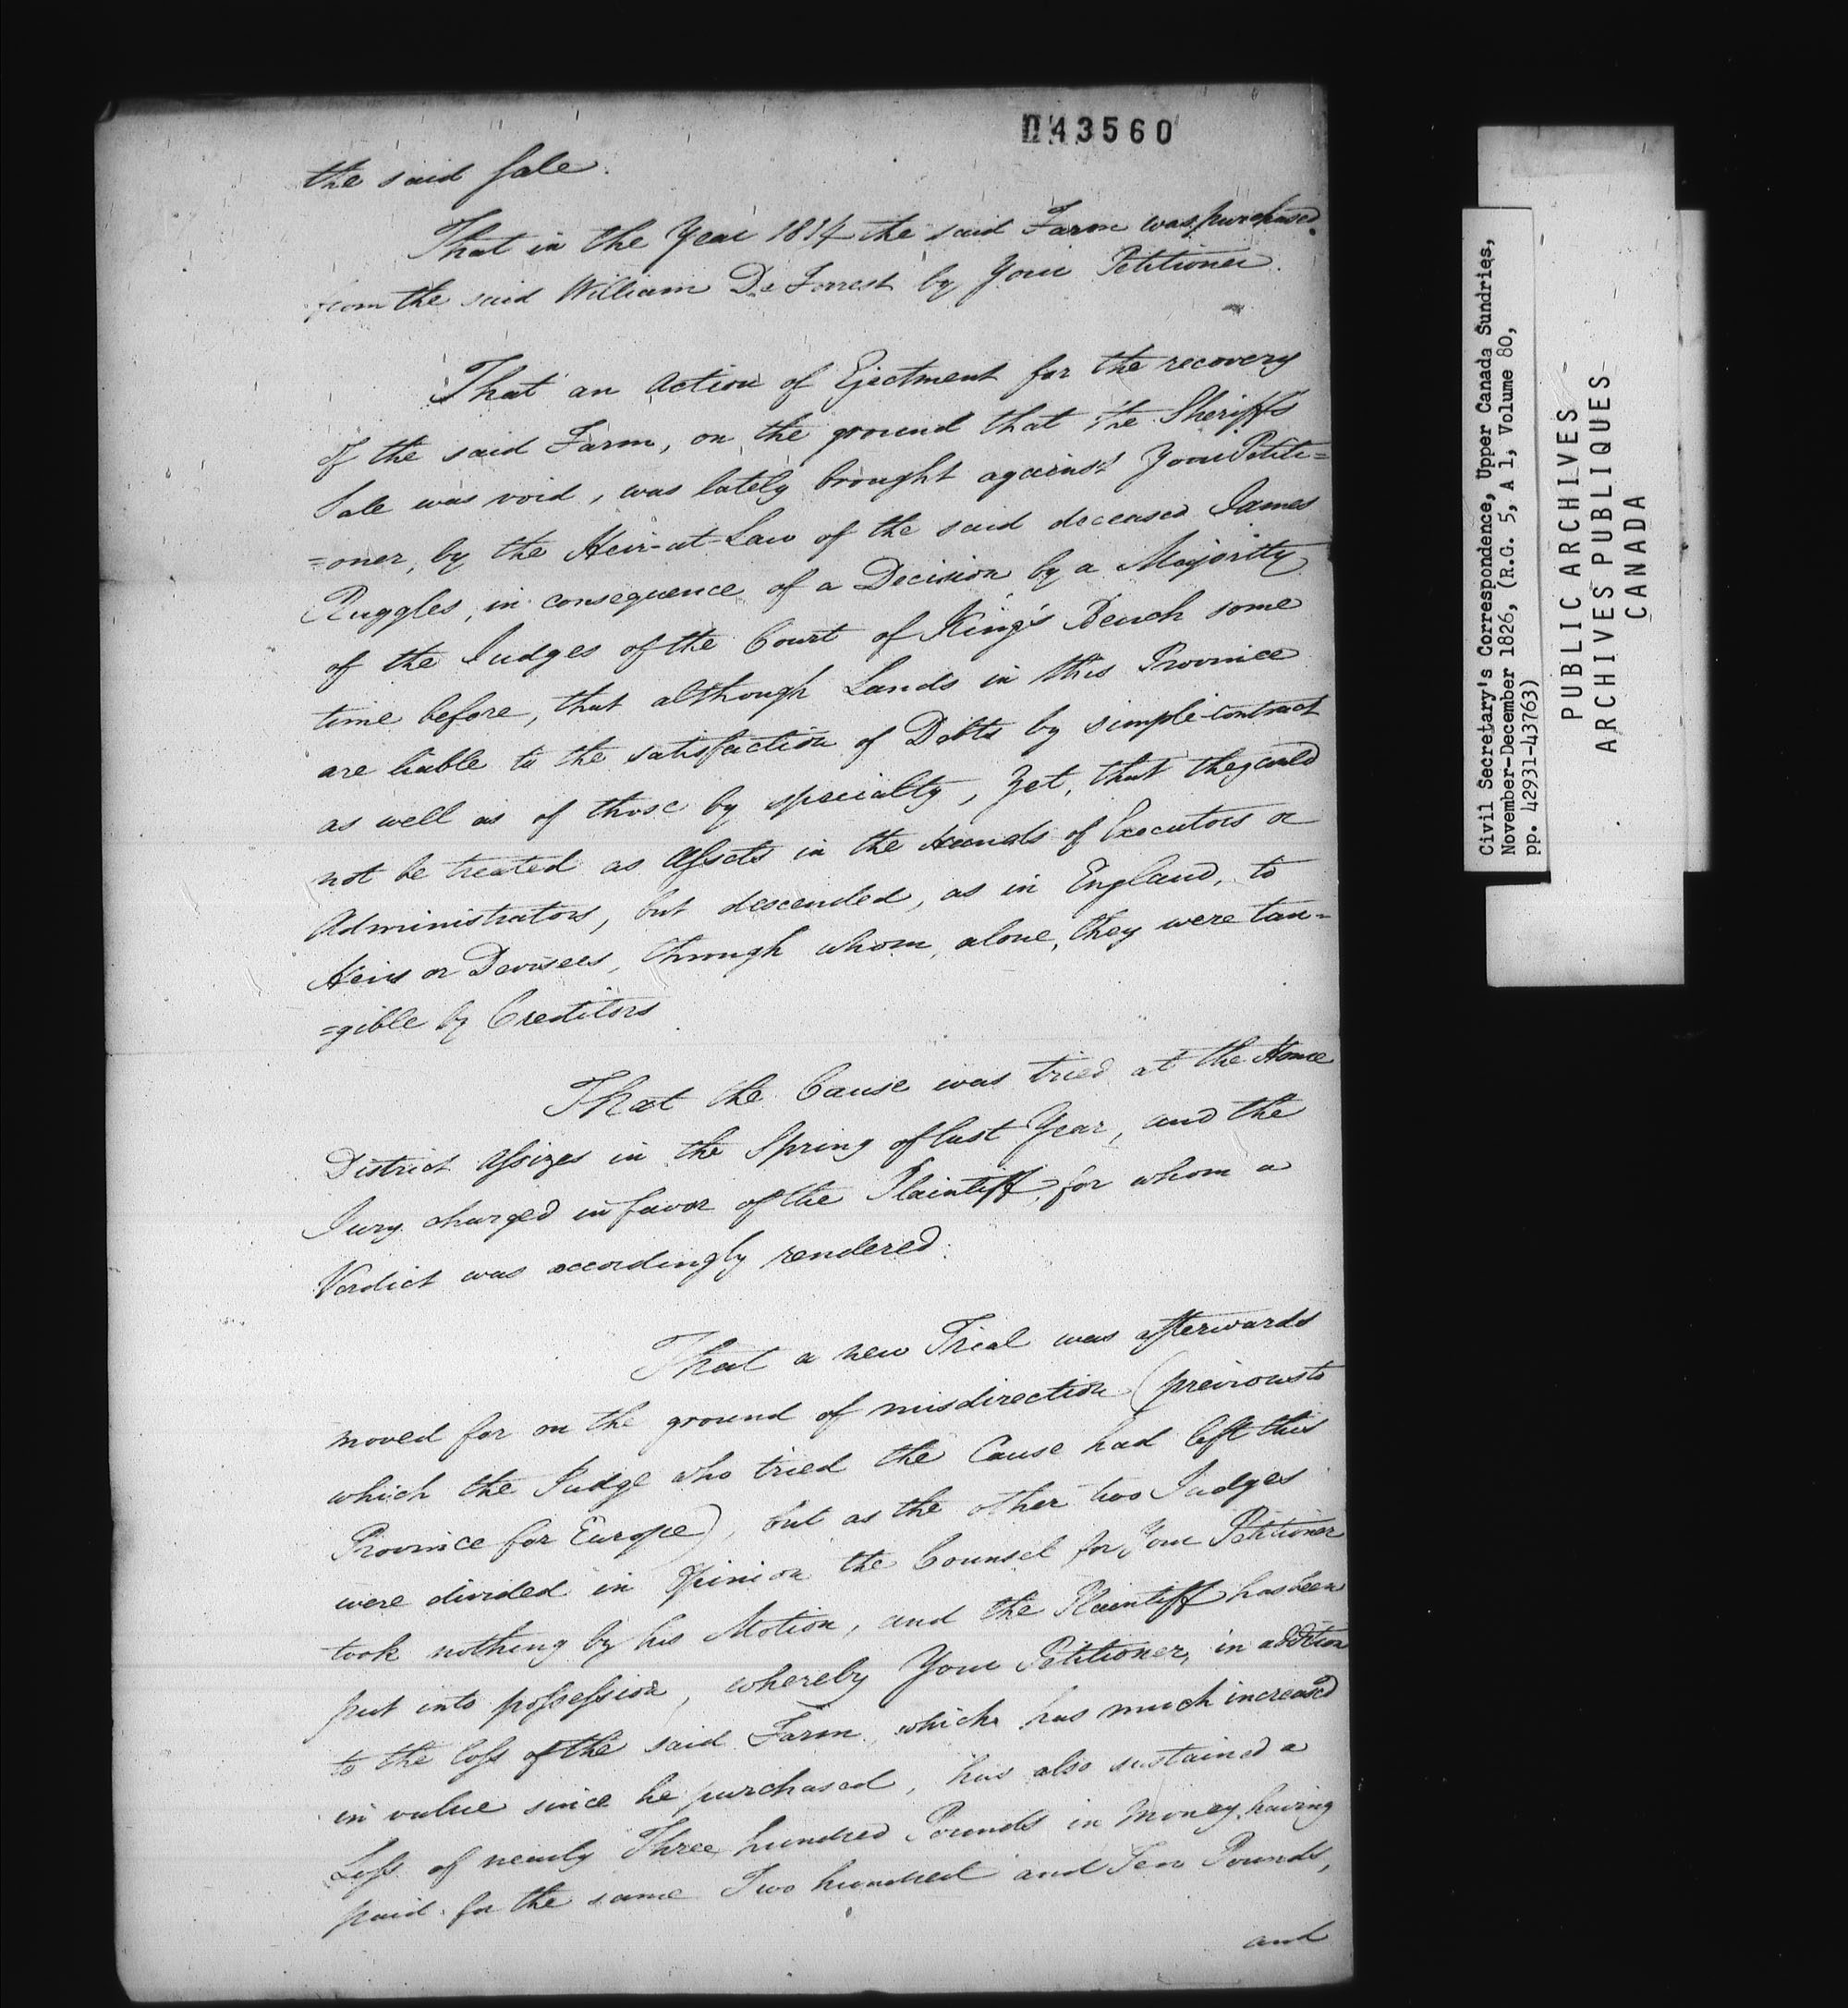 043560
the said Sale.
That in the Year 1814 the said Farm was purchased
from the said William De Forrest by Your Petitioner.
That an Action of Ejectment for the recovery
of the said Farm, on the ground that the Sheriff's
Sale was void, was lately brought against Your Petiti=
=oner, by the Heir-at-Law of the said deceased James
Ruggles, in consequence of a Decision by a Majority
of the Judges of the Court of King's Bench some
time before, that although Lands in this Province
are liable to the satisfaction of Debts by simple-contract
as well as of those by specialty, Yet, that they could
not be treated as Assets in the Hands of Executors or
Administrators, but descended, as in England, to
Heirs or Devisees, through whom, alone, they were tan=
=gible by Creditors
That the Cause was tried at the Home
District Assizes in the Spring of last Year, and the
Jury charged in favor of the Plaintiff, for whom a
Verdict was accordingly rendered.
That a new Trial was afterwards
moved for on the ground of misdirection (previous to
which the Judge who tried the Cause had left this
Province for Europe), but as the other two Judges
were divided in Opinion the Counsel for Your Petitioner
took nothing by his Motion, and the Plaintiff has been
put into possession, whereby Your Petitioner, in addition
to the loss of the said Farm, which has much increased
in value since he purchased, has also sustained a
Loss of nearly Three hundred Pounds in Money, having
paid for the same Two hundred and Ten Pounds,
and
Civil Secretary's Correspondence, Upper Canada Sundries,
November-December 1826, (R.G. 5, A 1, Volume 80,
pp. 42931-43763)
PUBLIC ARCHIVES
ARCHIVES PUBLIQUES
CANADA